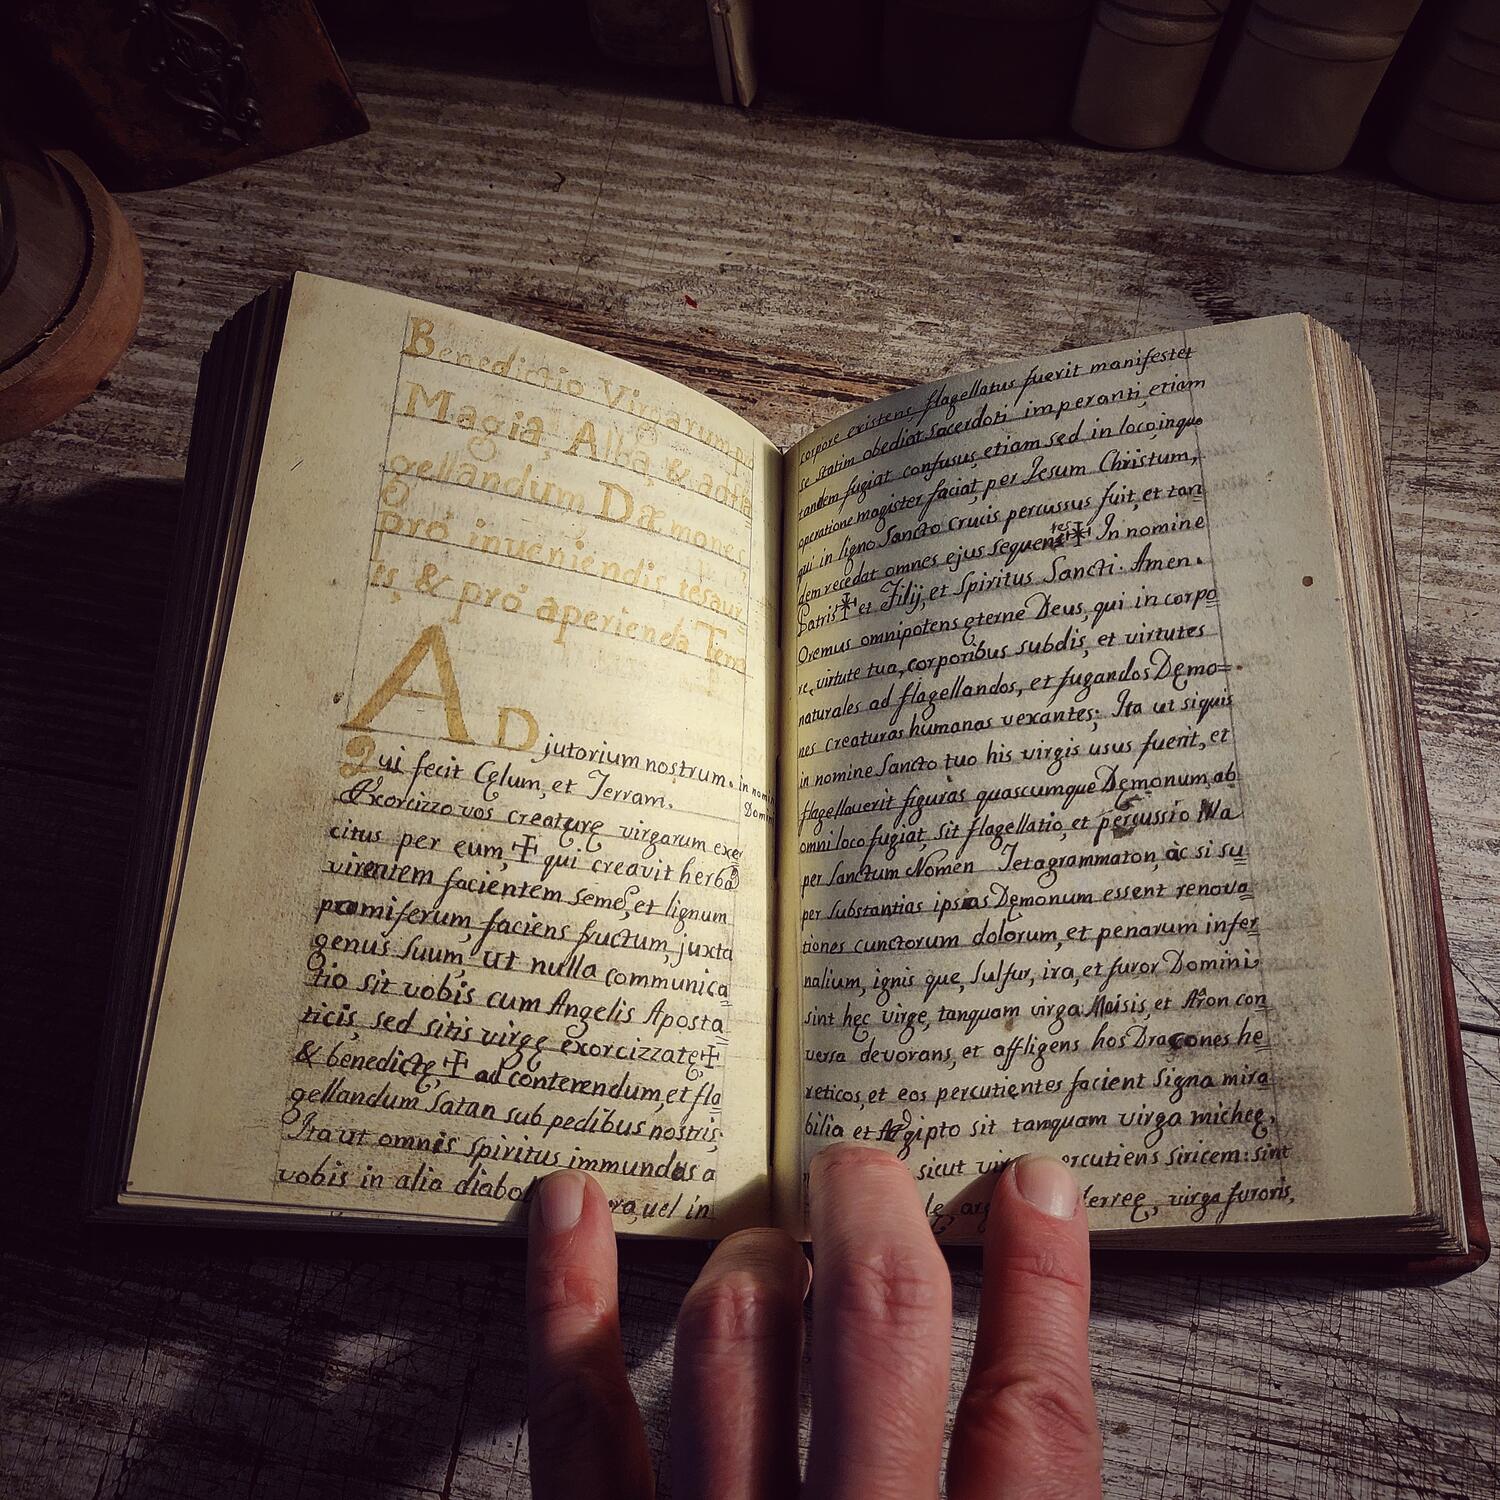 Benedictio Virgarum pō
Magia, Alba, & ad fla
gellandum Dæmones,
pró inueniendis tesaur
is, & pró aperienda Terra
ADjutorium nostrum. in nomi
Domini
Qui fecit Cęlum, et Terram.
Exorcizzo vos creaturę virgarum exer
citus per eum, ✠ qui creavit herbā
virentem facientem semē, et lignum
pomiferum, faciens fructum, juxta
genus suum, ut nulla communica
tio sit vobis cum Angelis Aposta
ticis, sed sitis virgę exorcizzatę ✠
& benedictę, ✠ ad conterendum, et fla
gellandum Satan sub pedibus nostris;
Ita ut omnis spiritus immundus a
vobis in alia diabol uel in
corpore existens, flagellatus fuerit manifestet
se statim obediat Sacerdoti imperanti, etiam
tandem fugiat confusus, etiam sed in loco, inquo
operatione magister faciat, per Jesum Christum,
qui in ligno Sancto Crucis percussus fuit, et tan
dem recedat omnes ejus sequentes ✠ In nomine
Patris ✠ et Filij, et Spiritus Sancti. Amen.
Oremus omnipotens ęterne Deus, qui in corpo
re, virtute tua, corporibus subdis, et virtutes
naturales ad flagellandos, et fugandos Dęmo=
nes creaturas humanas vexantes; Ita ut siquis
in nomine Sancto tuo his virgis usus fuerit, et
flagellauerit figuras quascumque Dęmonum, ab
omni loco fugiat, sit flagellatio, et percussio illa
per Sanctum Nomen Tetagrammaton, ác si su
per substantias ipsias Dęmonum essent renova
tiones cunctorum dolorum, et penarum infer
nalium, ignis que, sulfur, ira, et furor Domini
sint hęc virge, tanquam virga Moisis, et Aron con
versa devorans, et affligens hos Dracones he
reticos, et eos percutientes facient signa mira
bilia et Ægipto sit tanquam virga micheę,
sicut ercutiens siricem: sint
ferreę, virga furoris,